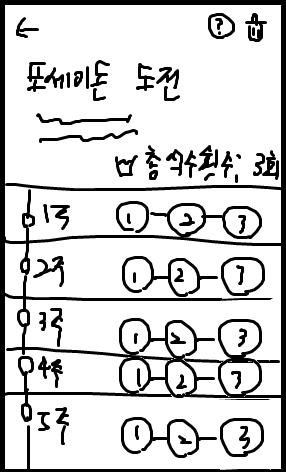 ?
포세이돈 도전
총 식수횟수: 3회
1주 1 2 3
2주 1 2 3
3주 1 2 3
4주 1 2 3
5주 1 2 3